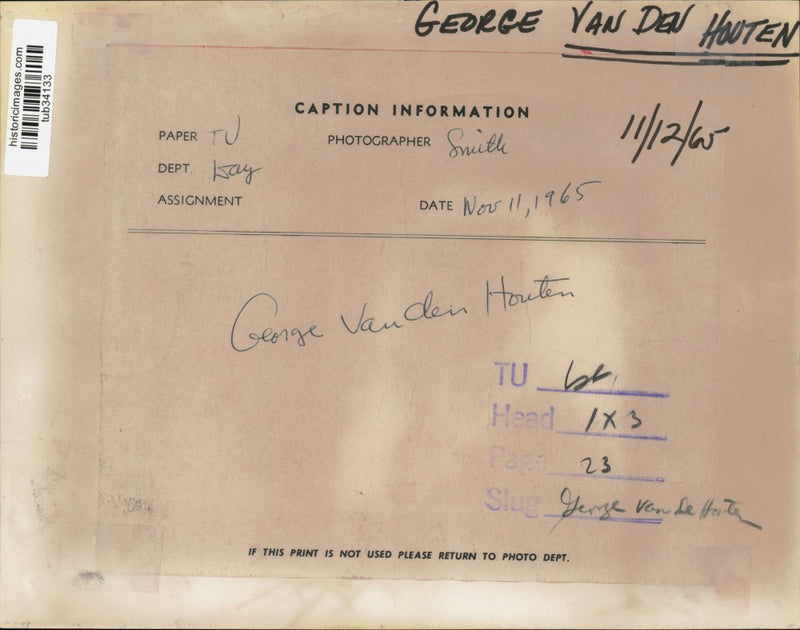 GEORGE VAN DEN HOUTEN
historicimages.com
tub34133
CAPTION INFORMATION
PAPER TU
PHOTOGRAPHER Smith
11/12/65
DEPT.
ASSIGNMENT
DATE Nov 11, 1965
George Van Den Houten
TU
Head 1 X 3
Page 23
Slug George Van De Houten
IF THIS PRINT IS NOT USED PLEASE RETURN TO PHOTO DEPT.